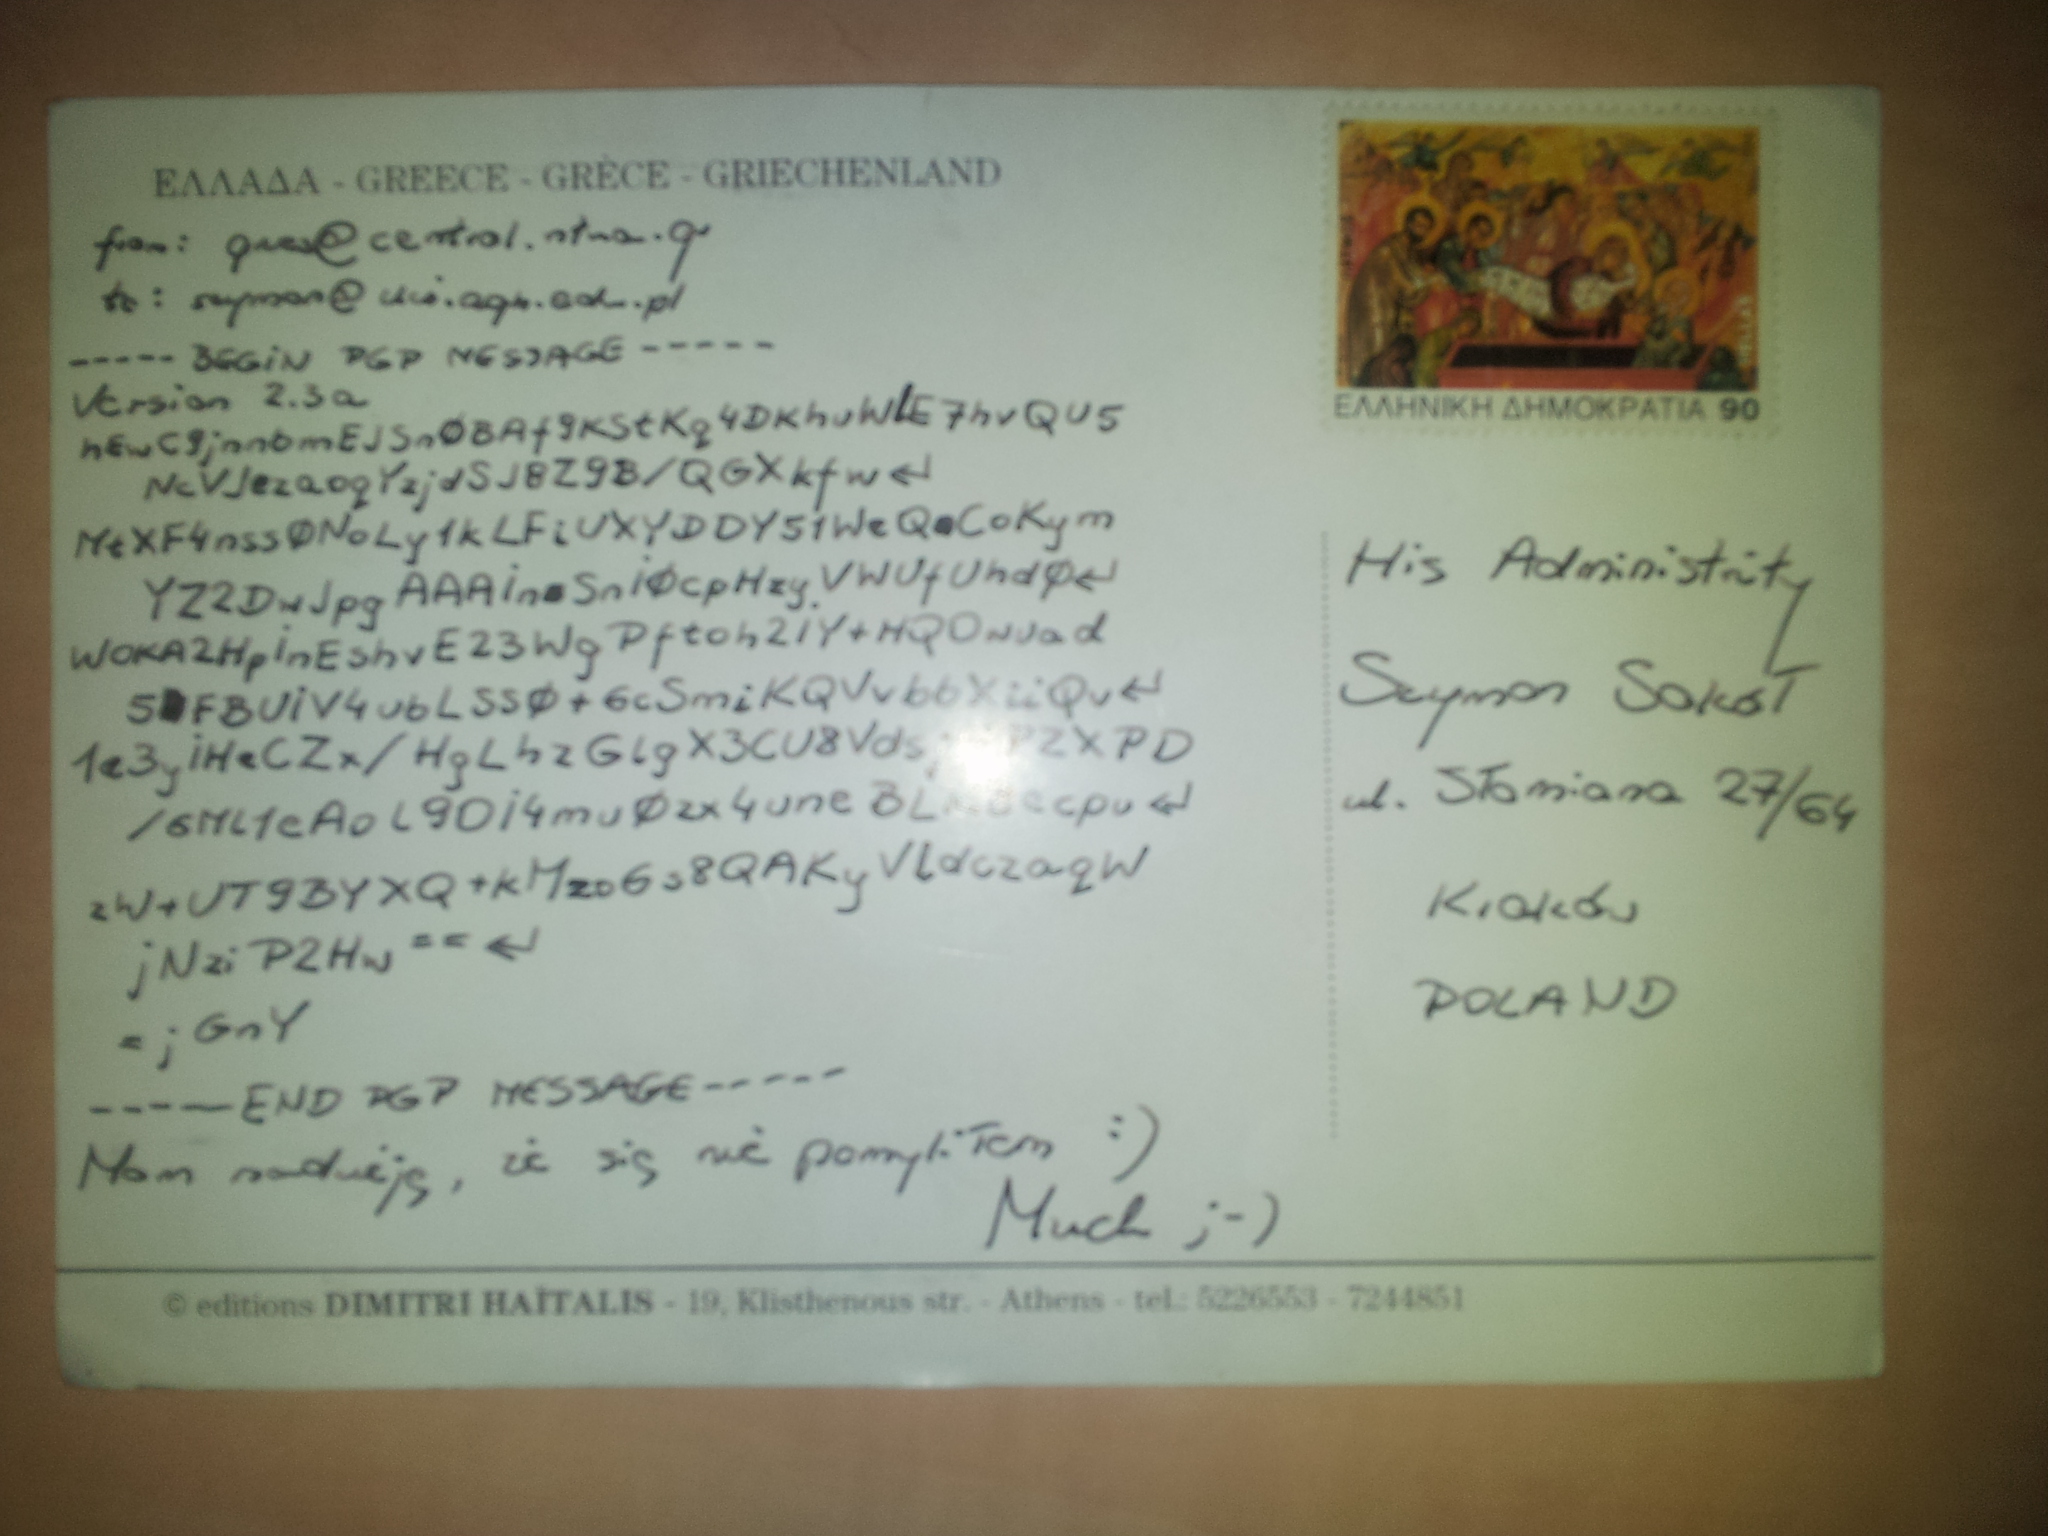 ΕΛΛΑΔΑ - GREECE - GRÈCE - GRIECHENLAND
from: @central.ntua.gr
to: szymon@uci.agh.edu.pl
----- BEGIN PGP MESSAGE -----
Version 2.3a
hEwC9jnnbmEJSnØBAf9KStKq4DKhuWLE7hvQU5
NcVJezaoqYzjdSJ8Z9B/QGXkfw↵
MtXF4nssØNoLy1kLFiUXYDDY51WeQ CoKym
YZ2DwJpgAAAin SniØcpHzyVWUfUhdØ↵
WOKA2HpinEshvE23WgPftoh2iY+HQOwuad
FBUiV4ubLSSØ+6cSmiKQVvbbXiiQv↵
1e3yiHeCZx/HgLhzGlgX3CU8Vds PZXPD
/6ML1eAoL9Oi4muØzx4uneBL ecpu↵
zW+UT9BYXQ+kMzoGs8QAKyVldczaqW
jNziP2Hw==↵
=jGnY
-----END PGP MESSAGE-----
Mam nadzieję, że się nie pomyliłem :)
Much ;-)
ΕΛΛΗΝΙΚΗ ΔΗΜΟΚΡΑΤΙΑ 90
His Administrity
Szymon Sokół
ul. Słomiana 27/64
Kraków
POLAND
© editions DIMITRI HAÏTALIS - 19, Klisthenous str. - Athens - tel.: 5226553 - 7244851